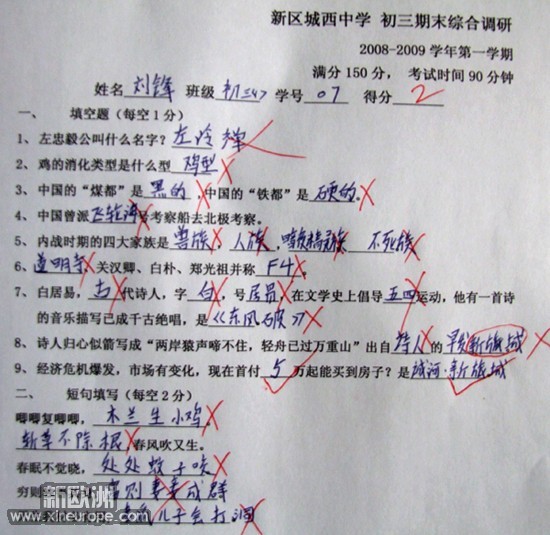 新区城西中学 初三期末综合调研
2008-2009 学年第一学期
满分 150 分，考试时间 90 分钟
姓名 刘锋 班级 初三4 学号 07 得分 2
一、 填空题（每空 1 分）
1、左忠毅公叫什么名字？左冷禅
2、鸡的消化类型是什么型 鸡型
3、中国的“煤都”是 黑的，中国的“铁都”是 硬的。
4、中国曾派 飞轮海 号考察船去北极考察。
5、内战时期的四大家族是 兽族、人族、暗夜精灵族 不死族
6、道明寺 关汉卿、白朴、郑光祖并称 F4。
7、白居易，古 代诗人，字 白，号 居易，在文学史上倡导 五四 运动，他有一首诗
的音乐描写已成千古绝唱，是《东风破》
8、诗人归心似箭写成“两岸猿声啼不住，轻舟已过万重山”出自 诗人 的 新旅城
9、经济危机爆发，市场有变化，现在首付 5 万起能买到房子？是 域河·新旅城
二、 短句填写（每空 2 分）
唧唧复唧唧，木兰生小鸡。
斩草不除根，春风吹又生。
春眠不觉晓，处处蚊子咬
穷则 妻妾成群
儿子会打洞
新欧洲
www.xineurope.com